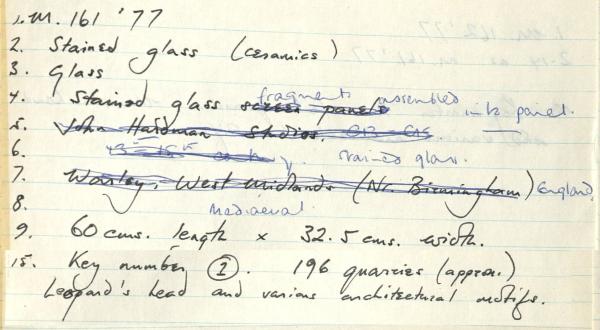 1. M. 161 '77
2. Stained glass (ceramics)
3. Glass
4. Stained glass screen panels fragments assembled into panel.
5. John Hardman Studios.
6. stained glass.
7. Warley, West Midlands (Nr. Birmingham) England
8. Mediaeval.
9. 60 cms. length x 32.5 cms. width.
15. Key number 1. 196 quarries (approx.)
Leopard's head and various architectural motifs.